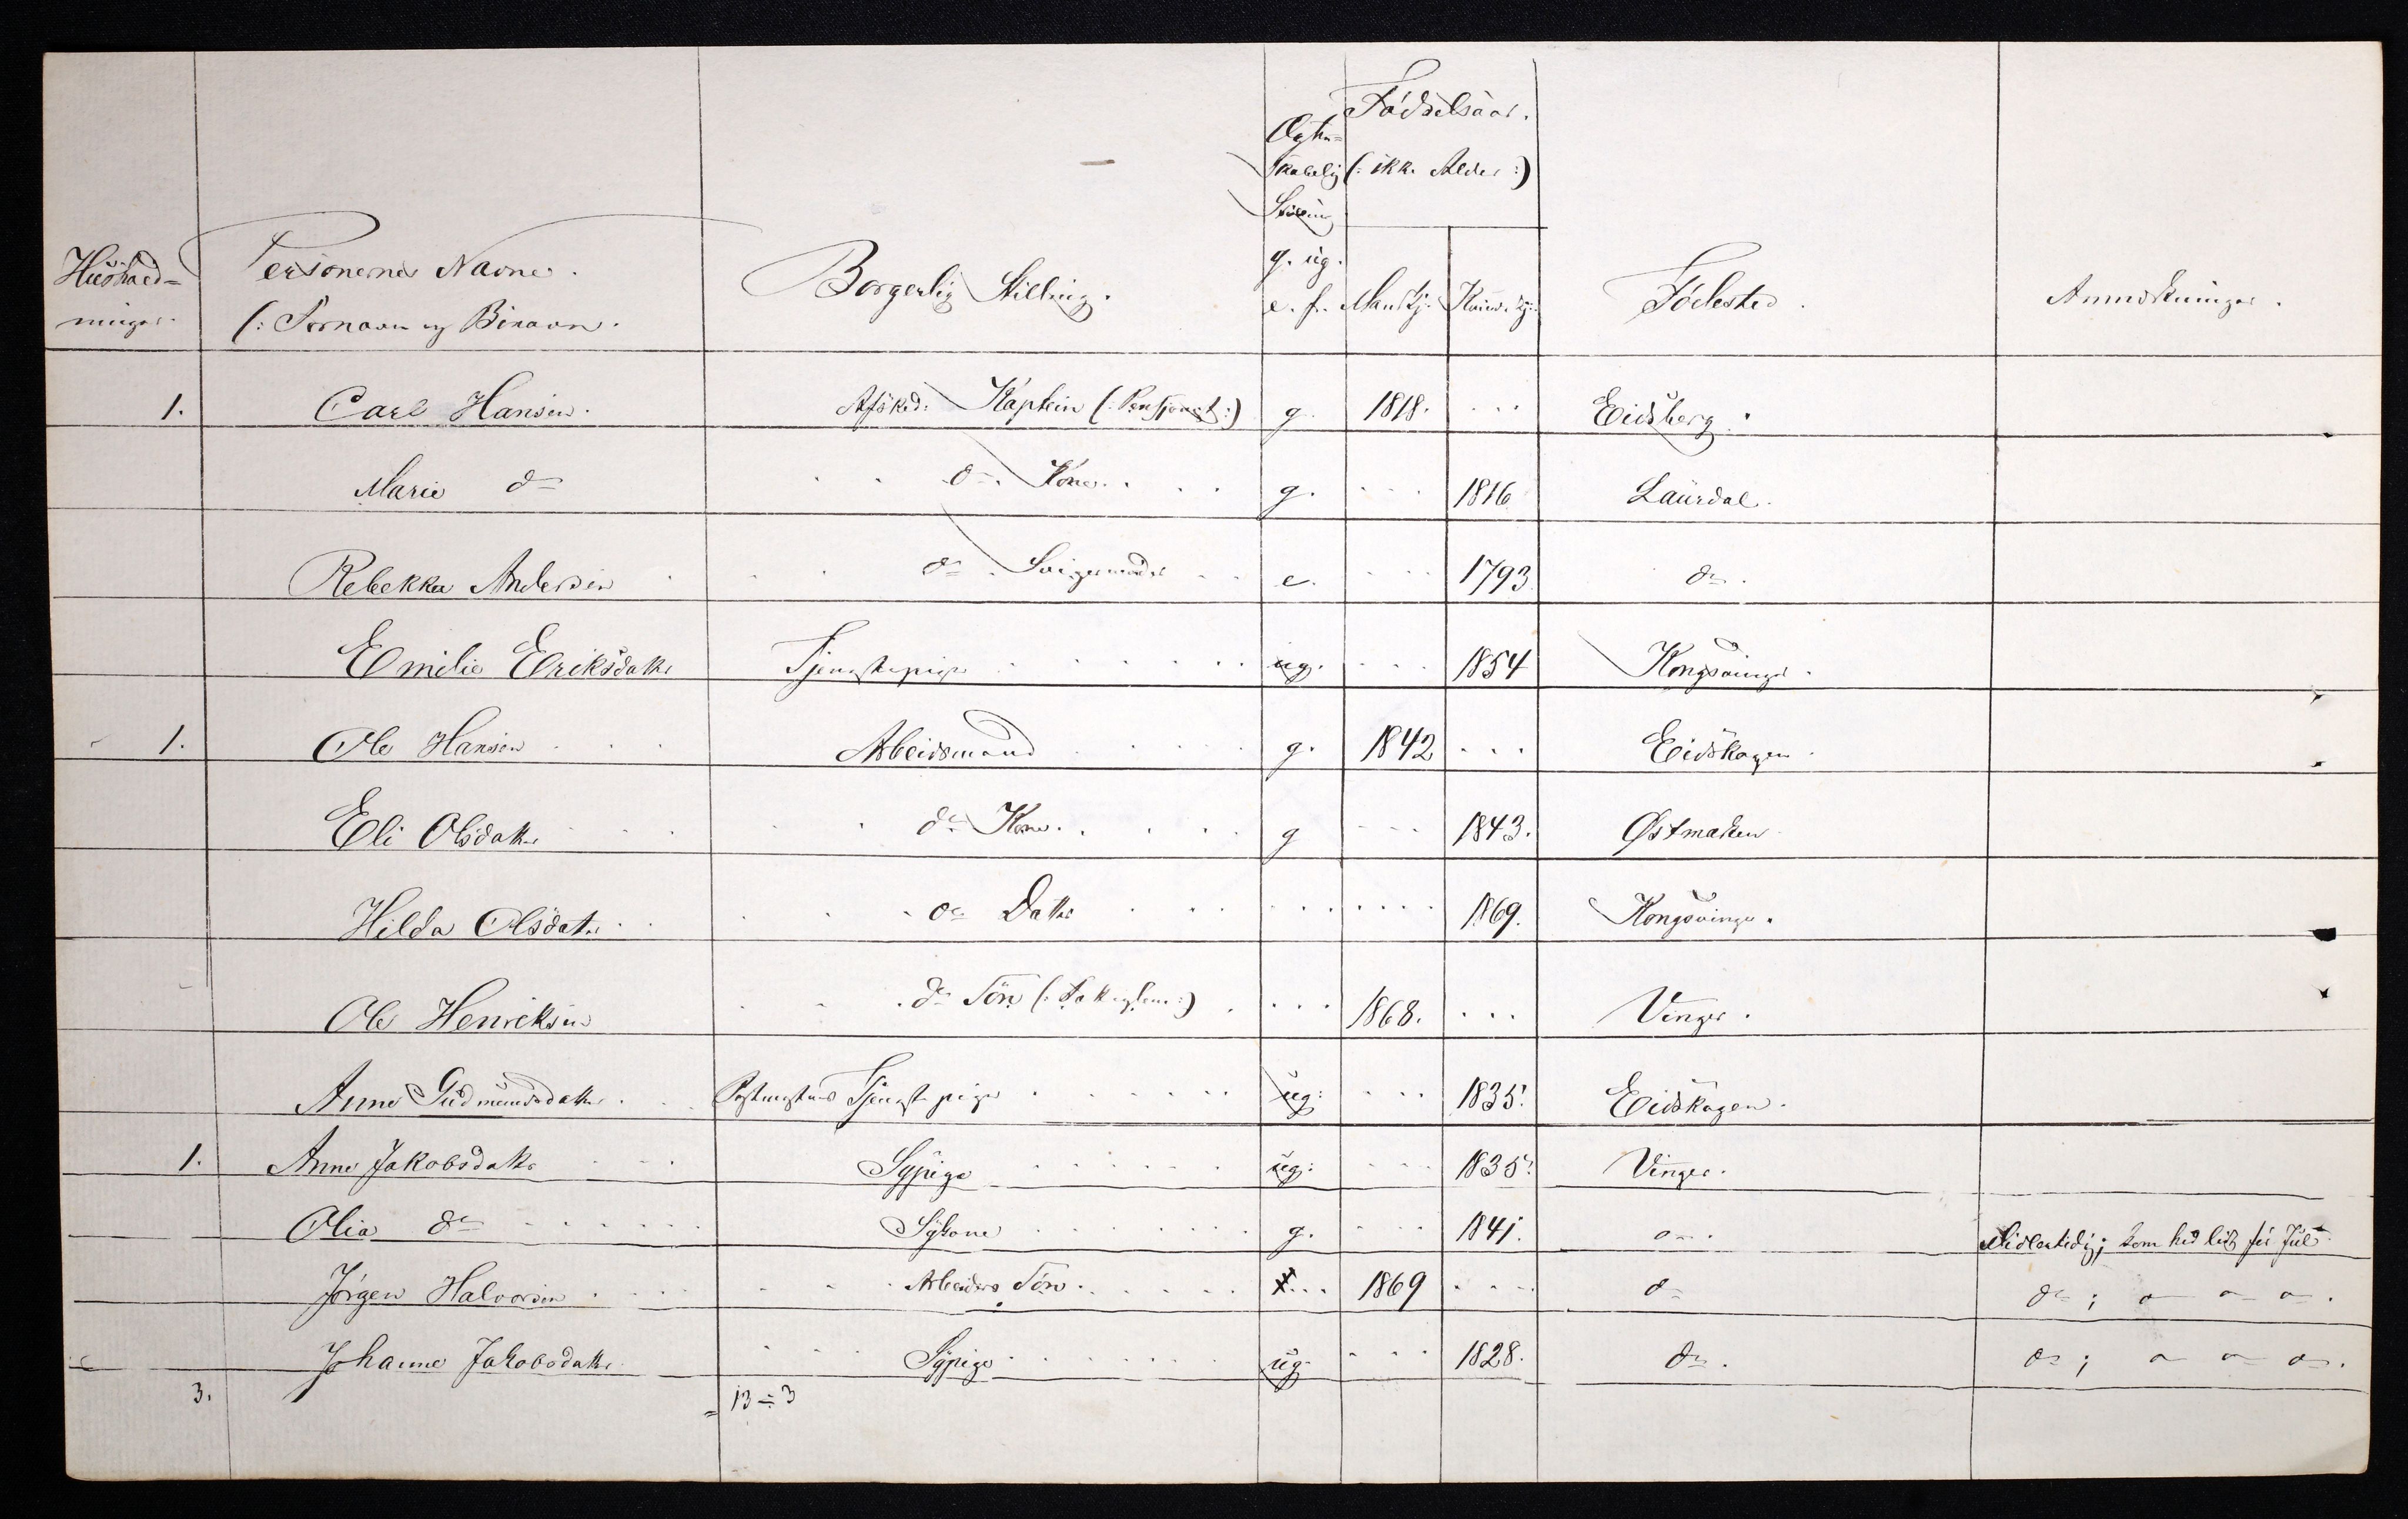 Fødselsaar.
Egte-
skabelig (: ikke Alder :)
Stilling
Huushold- Personernes Navne. g. ug.
ninger. (: Fornavn og Binavn. Borgerlig Stilling. e. f. Mandkj. Kvindekj. Fødested. Anmærkninger.
1. Carl Hansen. Afsked: Kaptein (: Pensjonist :) g. 1818. ... Eidsberg.
Marie do do. Kone. g. ... 1816 Laurdal.
Rebekka Andersen do. Svigermoder e. ... 1793. do.
Emilie Eriksdatter Tjenestepige ug. ... 1854 Kongsvinger.
1. Ole Hansen Arbeidsmand g. 1842 ... Eidskogen
Eli Olsdatter do Kone. g ... 1843. Østmarken
Hilda Olsdatr. do Datter ... 1869. Kongsvinger.
Ole Henriksen do Søn ... 1868. ... Vinger.
Anne Gudmundsdatter. Postmesterens Tjenestepige ug: ... 1835. Eidskogen.
1. Anne Jakobsdatter Sypige ug: ... 1835. Vinger.
Olia do Sykone g. ... 1841. do. Midlertidig;
Jørgen Halvorsen Arbeiders Søn. ... 1869 ... do do; do do do.
Johanne Jakobsdatter Sypige ug. ... 1828. do. do; do do do.
3. = 13 ÷ 3